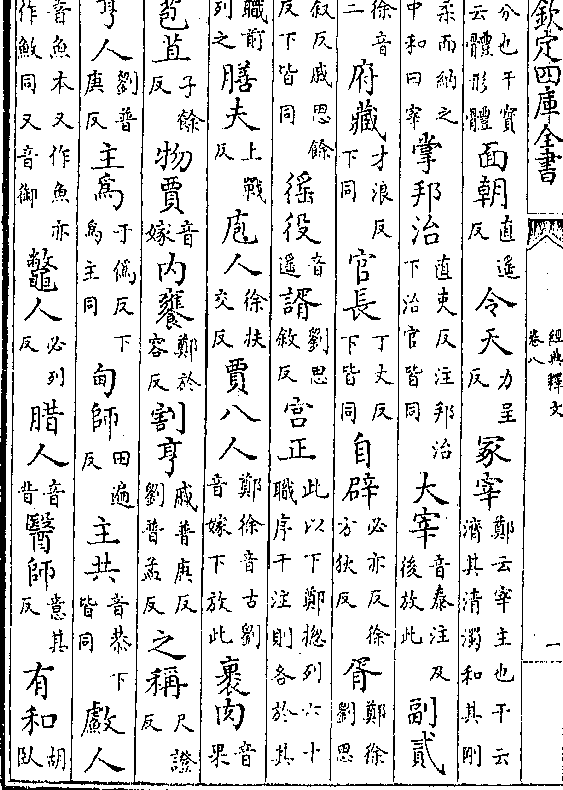 欽定四庫全書
經典釋文
卷八
一
分也干寳云體形體面朝直遥反令天力呈反冡宰鄭云宰主也干云濟其清濁和其剛
柔而納之中和曰宰掌邦治直吏反注邦治下治官皆同大宰音泰注及後放此副貳
徐音二府藏才浪反下同官長丁丈反下皆同自辟必亦反徐方狄反胥鄭徐劉思
叙反戚思餘反下皆同徭役音遥諝劉思敘反宫正此以下鄭揔列六十職序干注則各於其
職前列之膳夫上戰反庖人徐扶交反賈八人鄭徐音古劉音嫁下放此裹肉音果
苞苴子餘反物賈音嫁内饔鄭於容反割亨戚普庚反劉普孟反之稱尺證反
亨人劉普庚反主爲于僞反下爲主同甸師田遍反主共音恭下皆同人
音魚本又作魚亦作䱷同又音御鼈人必列反腊人音昔醫師意其反有和胡臥